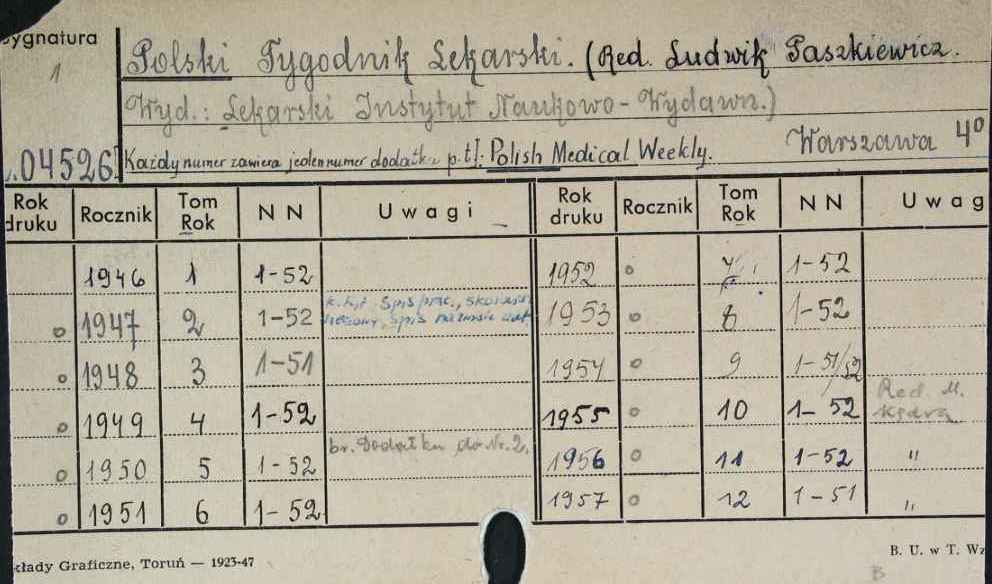 Sygnatura
1
Polski Tygodnik Lekarski. (Red. Ludwik Paszkiewicz.
Wyd.: Lekarski Instytut Naukowo-Wydawn.)
Warszawa 4°
04526 I
Każdy numer zawiera jeden numer dodatku p.t.: Polish Medical Weekly.
Rok druku Rocznik Tom Rok NN Uwagi Rok druku Rocznik Tom Rok NN Uwag
1946 1 1-52 1952 o 7 1-52
o 1947 2 1-52 k. tyt. Spis prac, 1953 o 8 1-52
o 1948 3 1-51 1954 o 9 1-51/52
o 1949 4 1-52 1955 o 10 1-52 Red. M. Kędra
o 1950 5 1-52 br. Dodatku do Nr. 2. 1956 o 11 1-52 "
o 1951 6 1-52 1957 o 12 1-51 "
kłady Graficzne, Toruń — 1923-47
B. U. w T. Wz
B